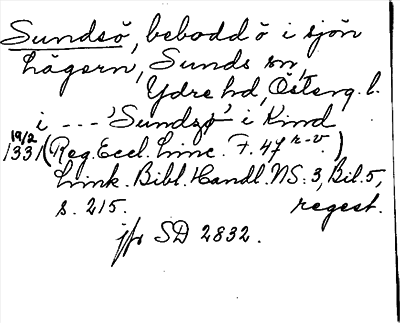 Sundsö, bebodd ö i sjön
Lägern, Sunds sn,
Ydre hd, Österg. l.
i --- 'Sundzø' i Kind
19/2
1331 (Reg. Eccl. Linc. F. 47 r-v)
Link. Bibl. Handl. NS: 3, Bil. 5,
s. 215. regest.
jfr SD 2832.